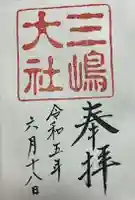 奉拝
三嶋
大社
令和五年
六月十八日